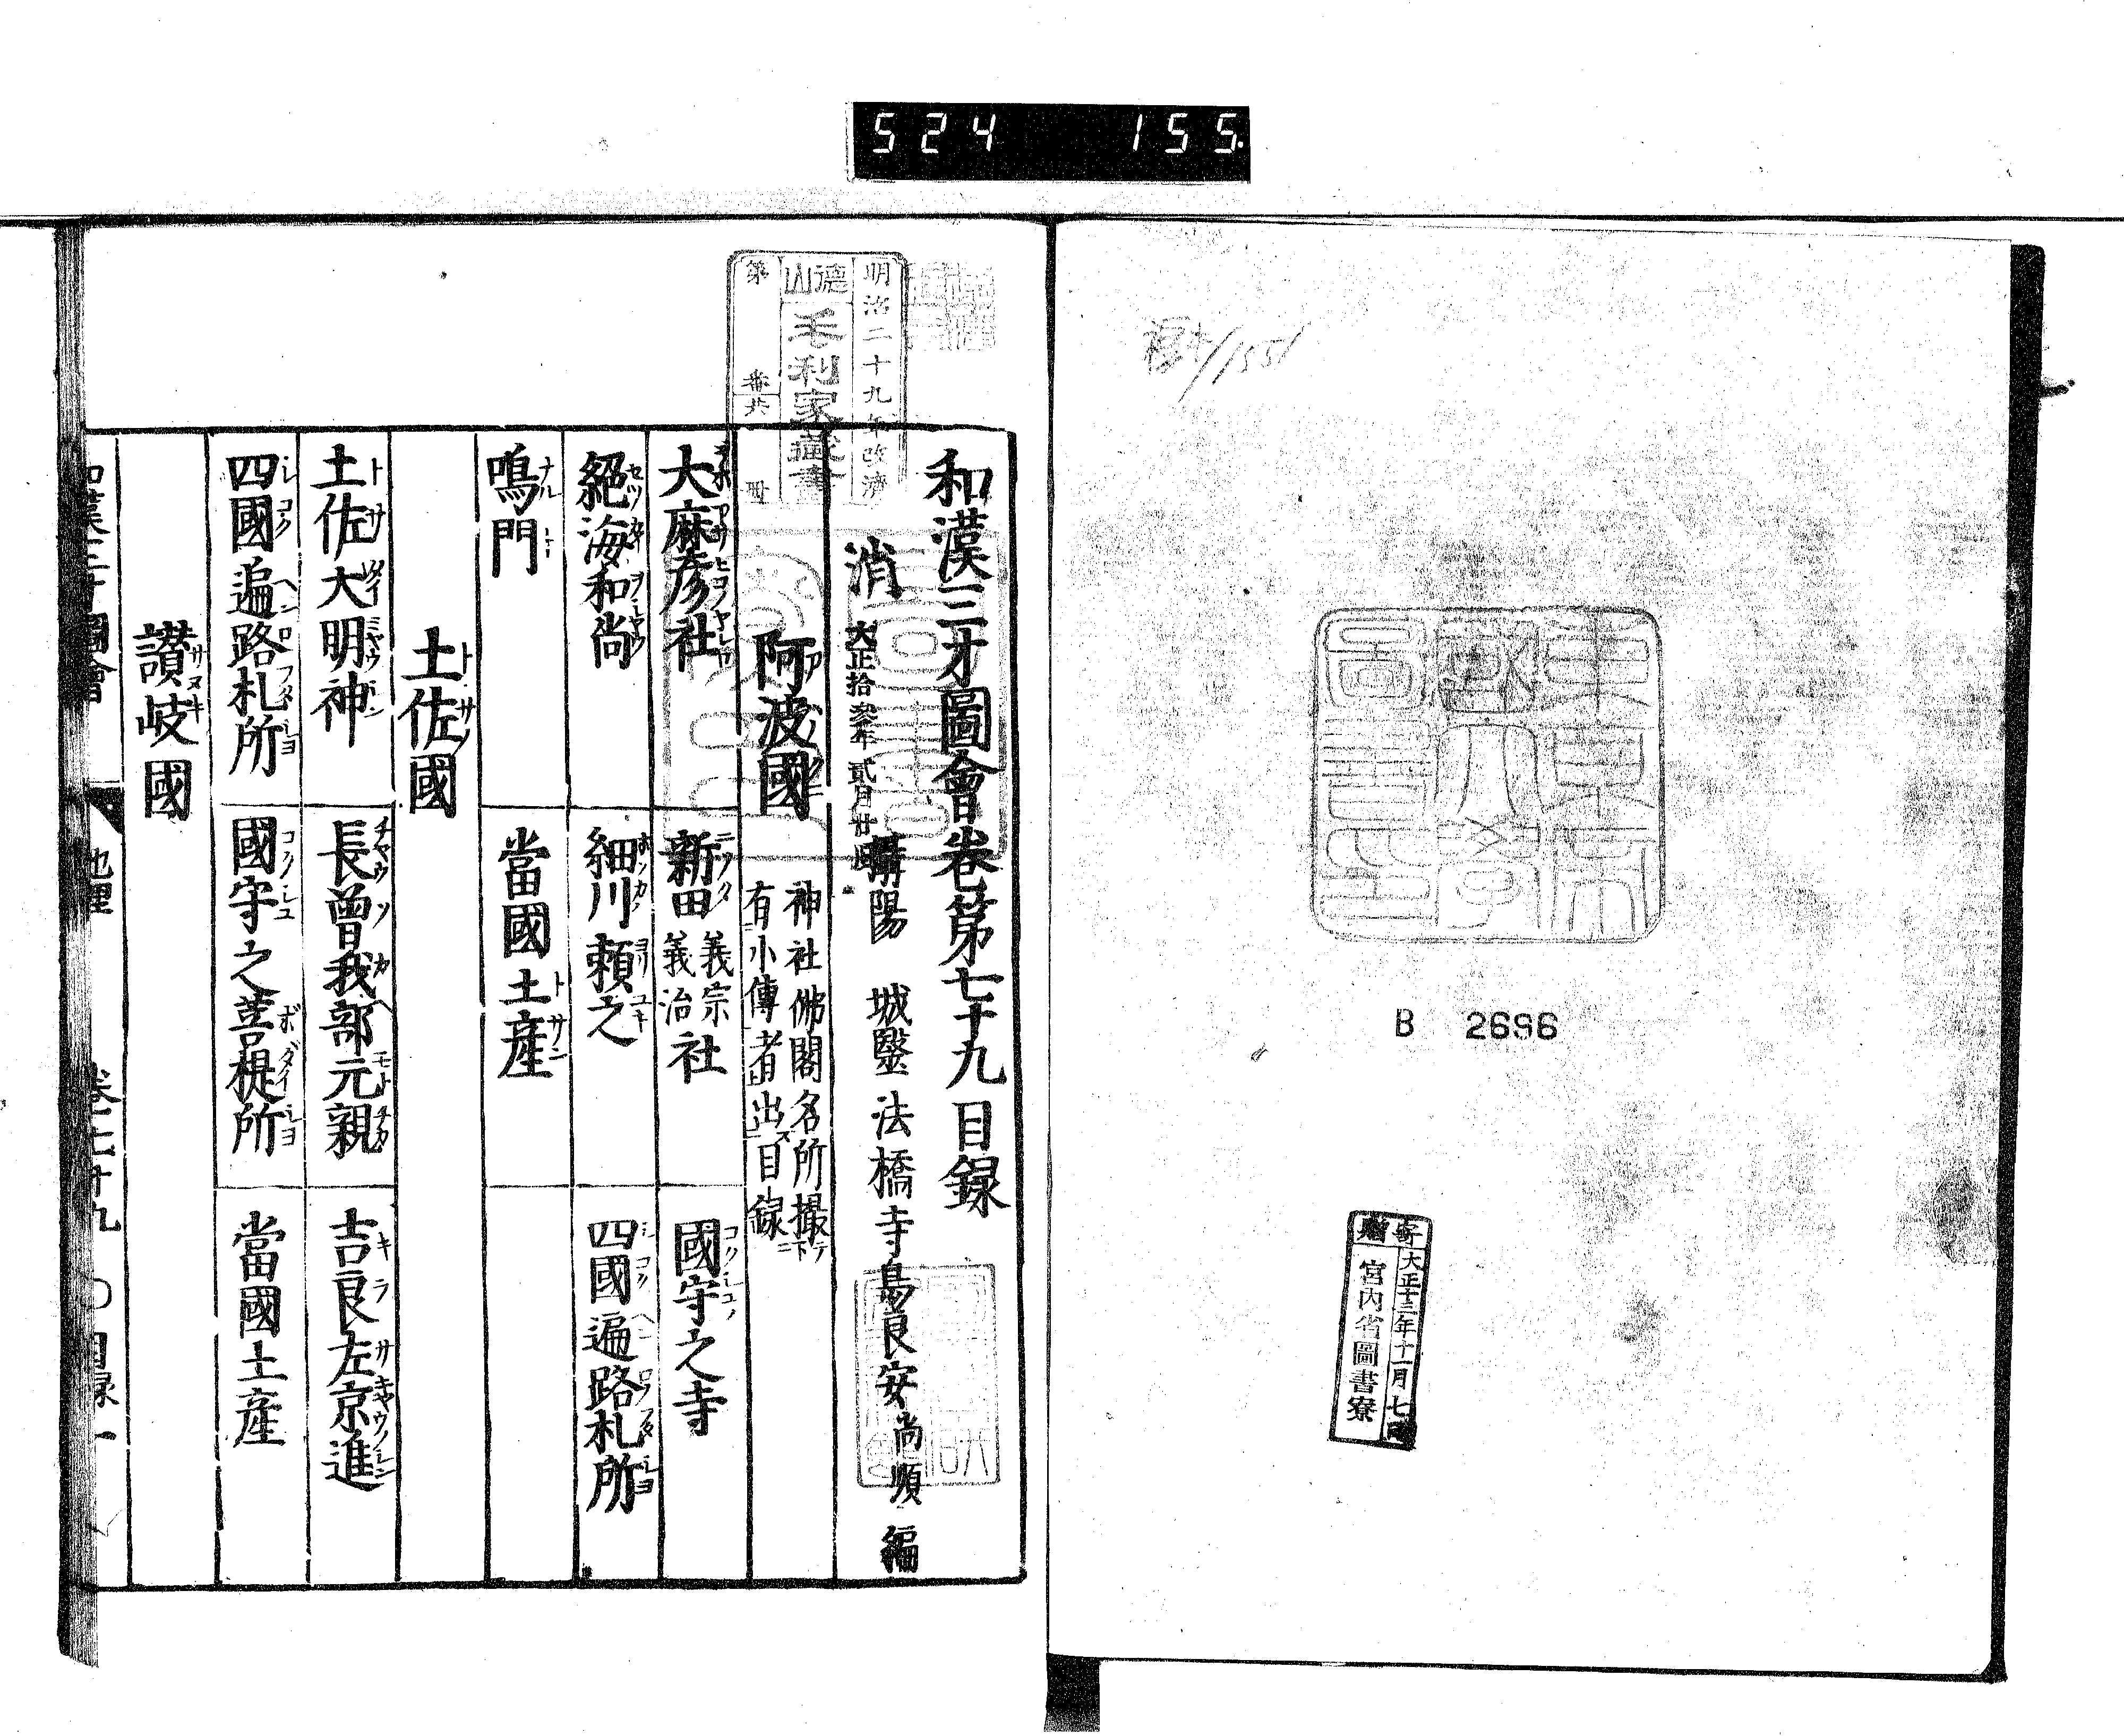 524 155.
B 2696
東京帝國大學圖書印
寄贈
大正十三年十一月七
宮内省圖書寮
明治二十九年改濟
德山
毛利家藏書
第 番共 冊
和漢三才圖會卷第七十九目録
消 大正拾參年貳月廿
攝陽 城醫法橋寺島良安尚順 編
阿波國 神社佛閣名所撮テ下
有小傳者上出ス目録ニ
大麻彦社 新田義宗義治社 國守之寺
絕海和尚 細川頼之 四國遍路札所
鳴門 當國土産
土佐國
土佐大明神 長曽我部元親 吉良左京進
四國遍路札所 國守之菩提所 當國土産
讃岐國
和漢三才圖會 地理 卷七十九 〇目録 一